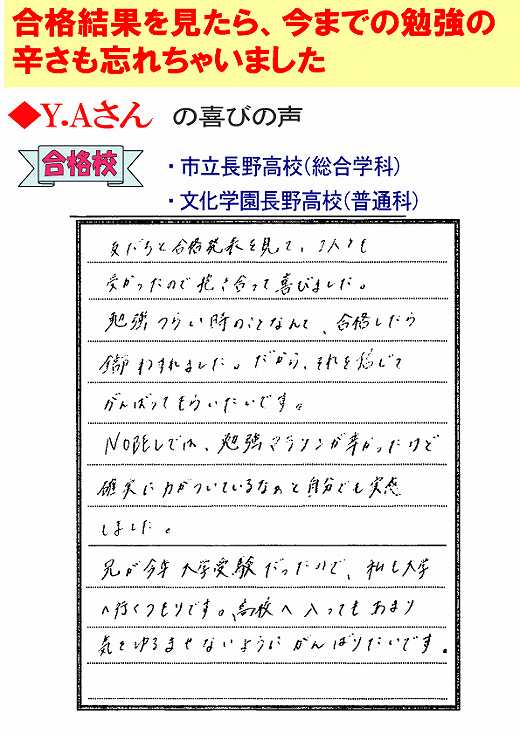 合格結果を見たら、今までの勉強の
辛さも忘れちゃいました
◆Y.Aさん の喜びの声
合格校
・市立長野高校(総合学科)
・文化学園長野高校(普通科)
友だちと合格発表を見て、2人とも
受かったので抱き合って喜びました。
勉強つらい時のことなんて、合格したら
全部わすれました。だから、それを信じて
がんばってもらいたいです。
NOBELでは、勉強マラソンが辛かったけど
確実に力がついているなぁと自分でも実感
しました。
兄が今年大学受験だったので、私も大学
へ行くつもりです。高校へ入ってもあまり
気をゆるませないようにがんばりたいです。